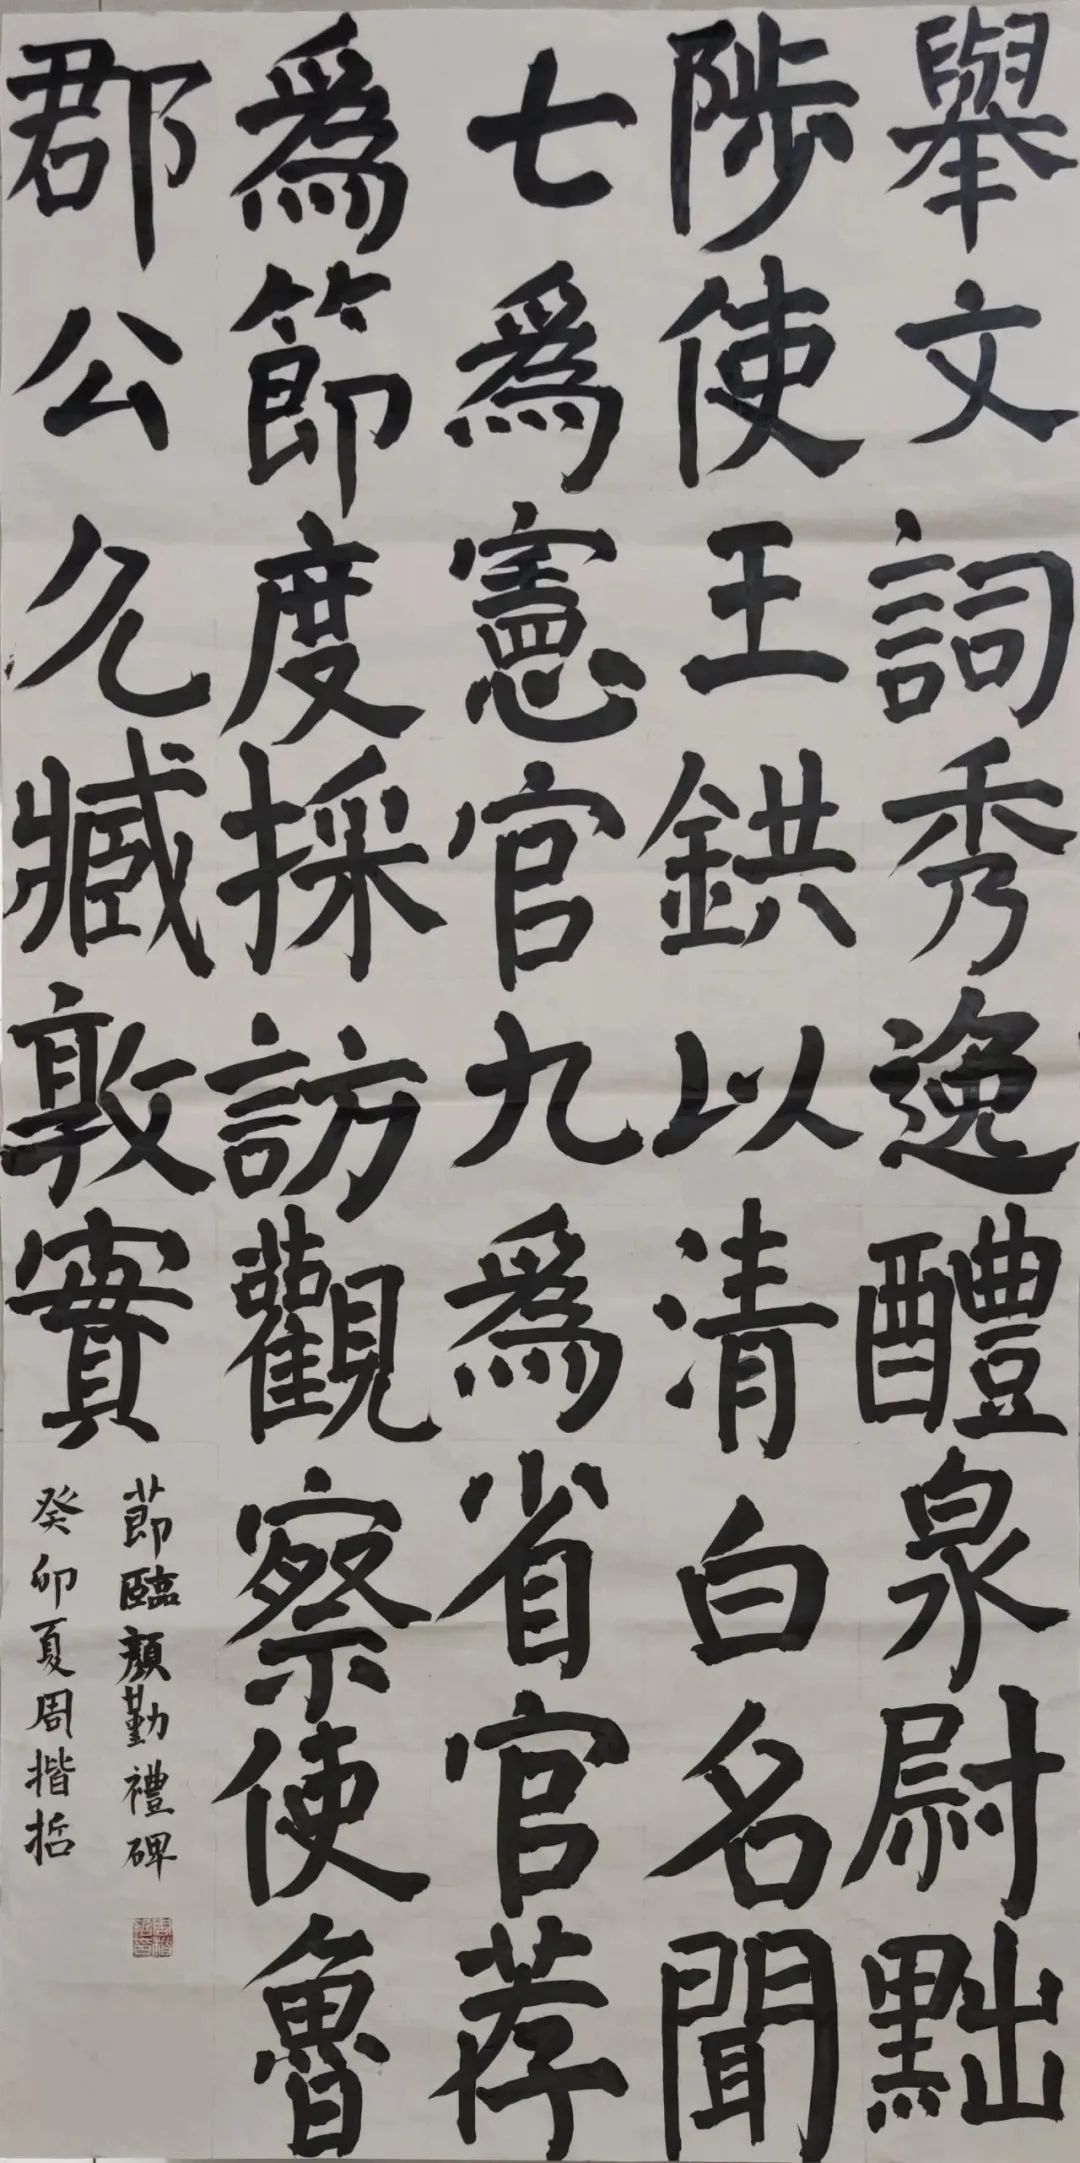 舉文詞秀逸醴泉尉黜
陟使王鉷以清白名聞
七爲憲官九爲省官荐
爲節度採訪觀察使魯
郡公允臧敦實
莭臨顏勤禮碑
癸卯夏周楷哲